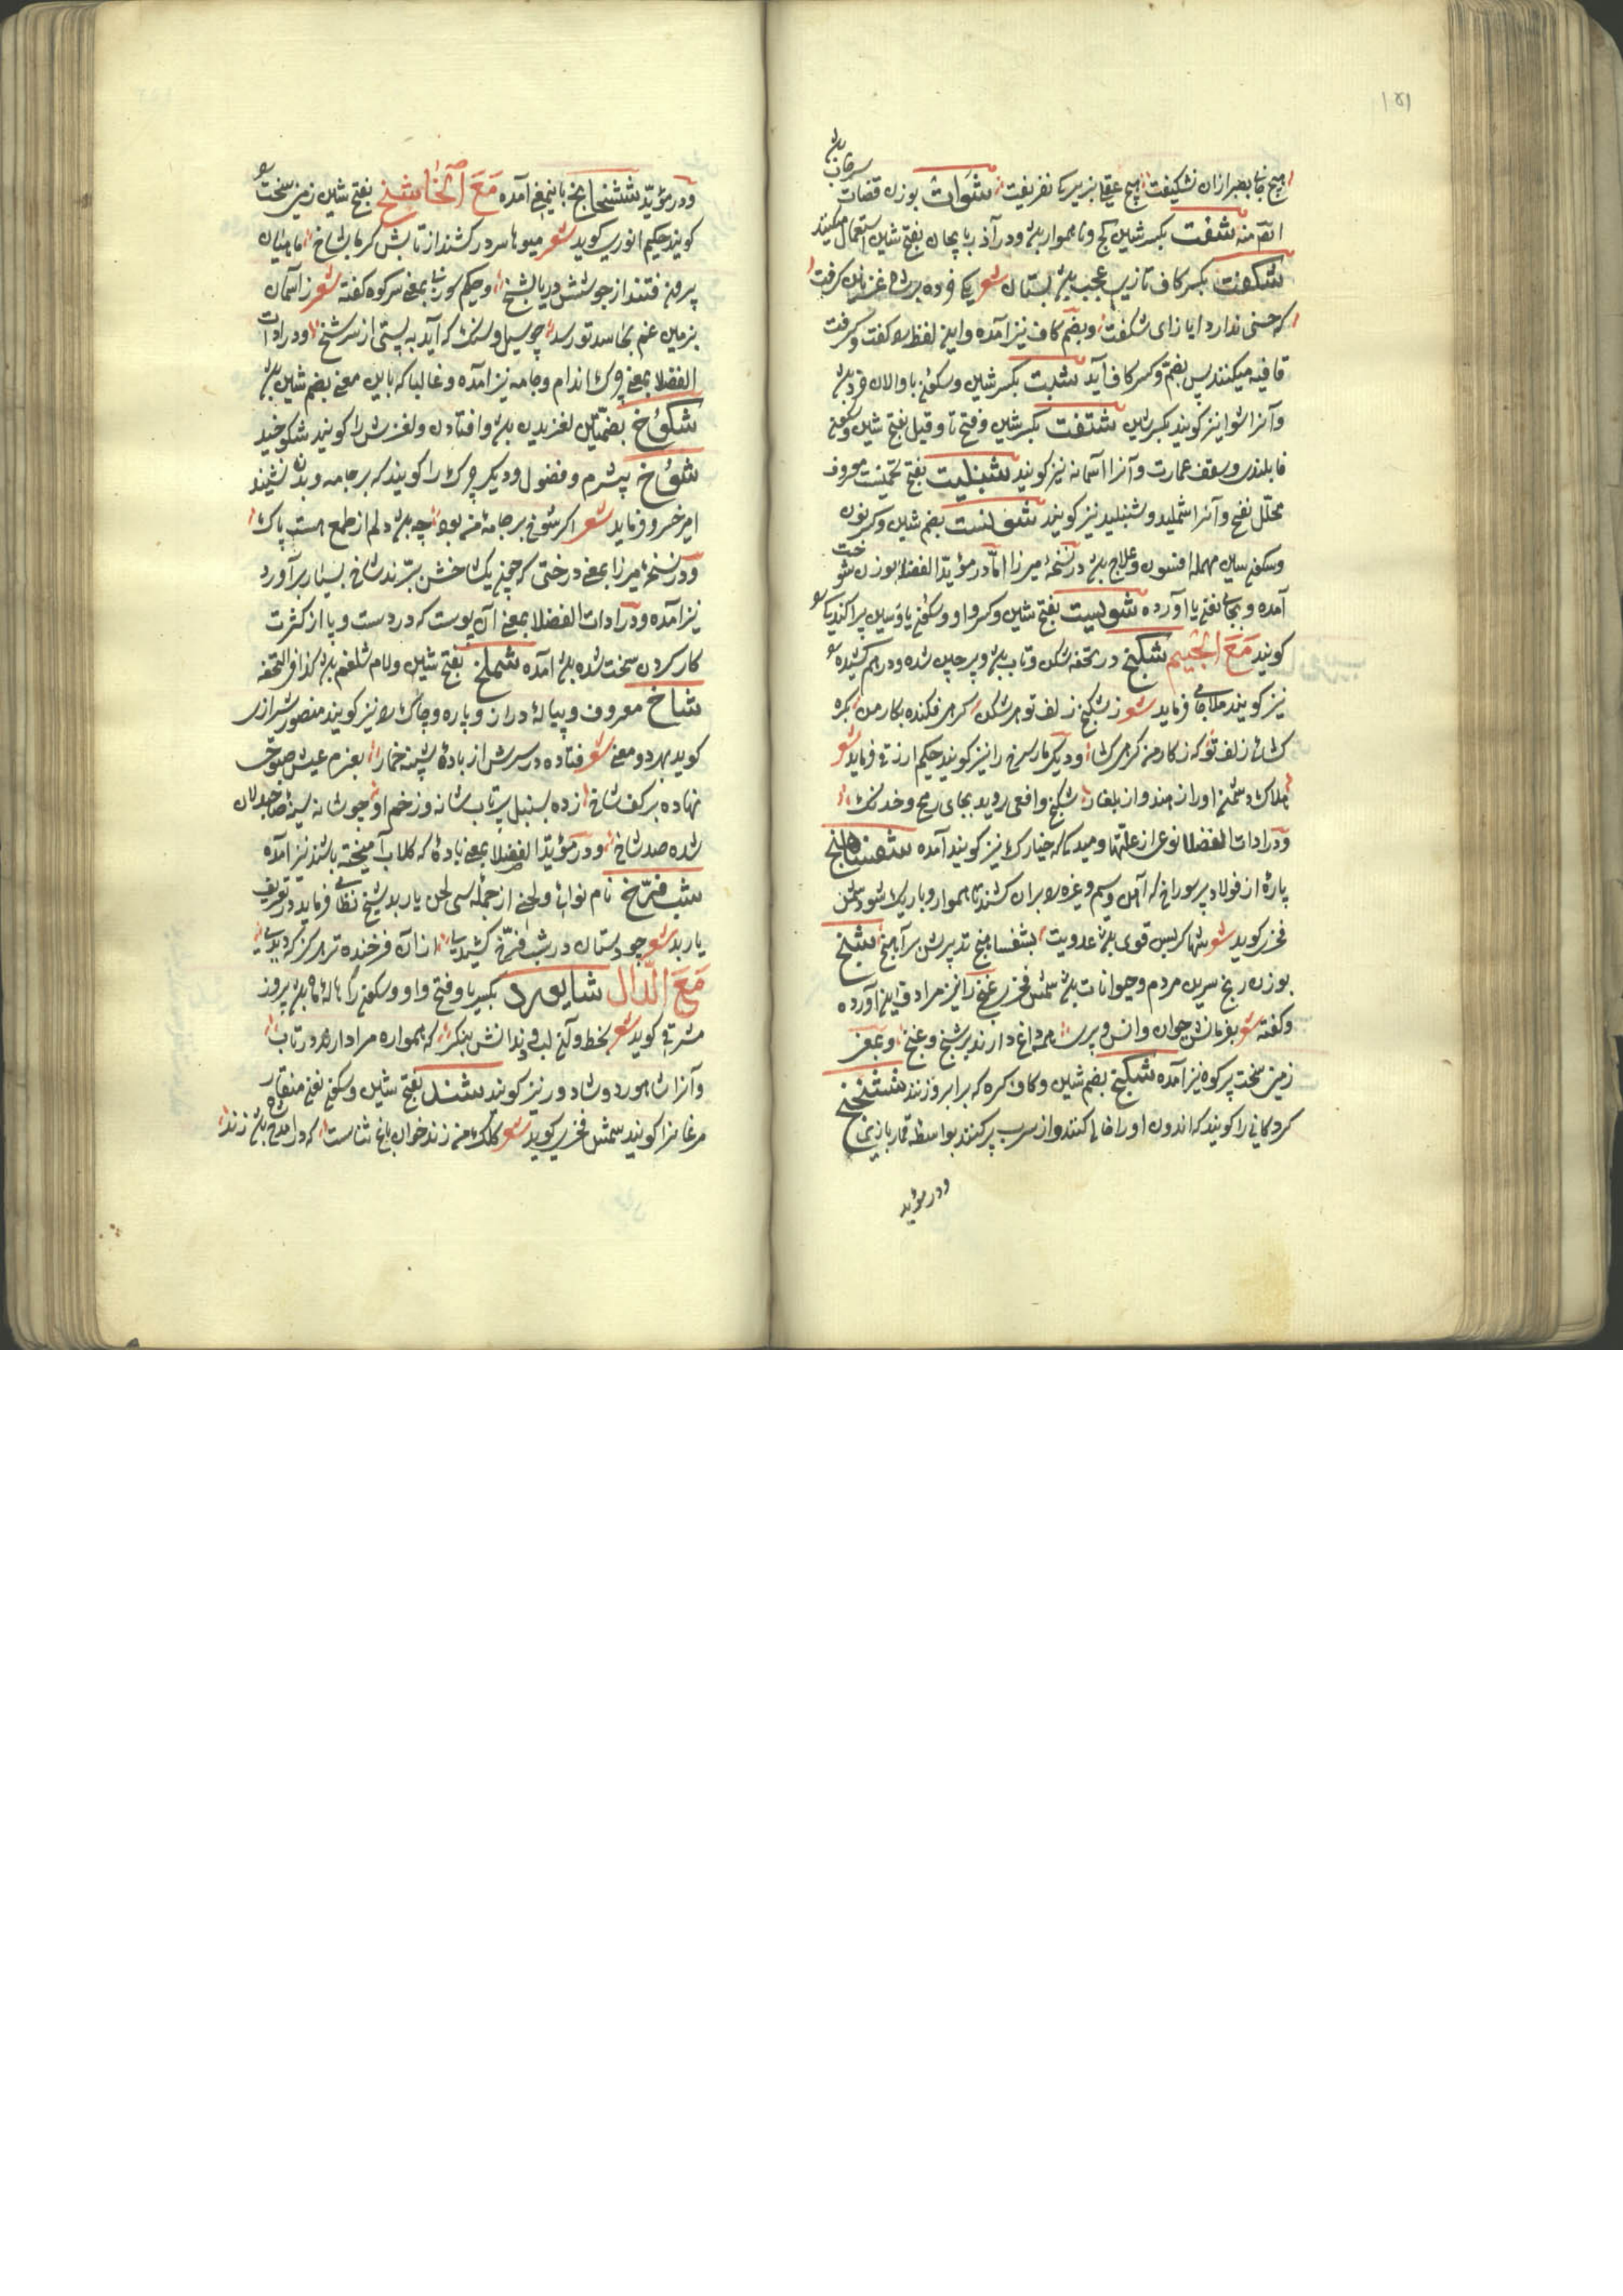 ۱۵۱
هیچ جانی بصبر ازان نشکیفت هیچ عقلی بزیرکی نفریفت شوات بوزن قضات سرخاب
انتهی منه شفت بکسر شین کج و ناهموار باشد و در آذربایجان بفتح شین استعمال میکنند
شکفت بکسر کاف تازی عجب باشد بستان شعر یکی خرده بر شاه غزنین گرفت
که حسنی ندارد ایاز ای شکفت و بضم کاف نیز آمده و این لفظ را بگفت و گرفت
قافیه میکنند پس بضم و کسر کاف آید شبت بکسر شین و سکون با والان خرد باشد
و آنرا شوا نیز گویند بکسر شین شتفت بکسر شین و فتح تا و قیل بفتح شین و سکون
فا بلندی و سقف عمارت و آنرا آسمانه نیز گویند شنبلیت بفتح تخمیست معروف
محلّل نفخ و آنرا شملید و شنبلید نیز گویند شونست بضم شین و کسر نون
و سکون سین مهمله افسون و علاج باشد در نسخهٔ میرزا امّا در مؤیّد الفضلا بوزن شوخت
آمده و بجای نون یا آورده شولیت بفتح شین و کسر واو و سکون یا و سین پراکندگی
گویند مَعَ الْجیم شکنج در تحفه شکن و تاب باشد و پرچین شده و درهم کشیده
نیز گویند ملا جامی فرماید شعر ز شکنج زلف تو هر شکن گرهی فکنده بکار من گره
کشای زلف تو که ز کار من گره کشا و دیگر مار سرخ را نیز گویند حکیم ارزقی فرماید شعر
هلاک دشمن او را ز هند و از بلغار شکنج و افعی روید بجای رمح و خدنک
و در ادات الفضلا نوعی از علّتها و میدکی که خیارک نیز گویند آمده شفشاهنج
پارهٔ از فولاد پر سوراخ که آهن و سیم و غیره را بران کشند تا هموار و باریک شود شمس
فخری گوید شعر شها گر بس قوی باشد عدویت بشفشاهنج تدبیرش برآهنج شنج
بوزن رنج سرین مردم و حیوانات باشد شمس فخری غنج را نیز مرادف این آورده
و گفته شعر بفرمانش جوان و انس و پری همه داغ دارند بر شنج و غنج و بمعنی
زمین سخت پر کوه نیز آمده شکنج بضم شین و کاف گره که بر ابرو زنند ششنج
کردکانی را گویند که اندرون او را خالی کنند و از سرب پر کنند بواسطه قماربازی
و در مؤید
و در مؤیّد ششنجا بخ باینمعنی آمده مَعَ الْخا شخ بفتح شین زمین سخت
گویند حکیم انوری گوید شعر میوها سر در کشند از تابش گرما بشاخ ماهیان
بیرون فتند از جوشش دریا بشخ و حکیم سوزنی بمعنی سر کوه گفته شعر ز آسمان
بزمین غم بحاسد تو رسد چو سیل و سنک که آید به پستی از سر شخ و در ادات
الفضلا بمعنی چرک اندام و جامه نیز آمده و غالبا که باین معنی بضم شین باشد
شکوخ بضمّتین لغزیدن باشد و افتادن و لغزش را گویند شکوخید
شوخ بیشرم و فضول و دیگر چرک را گویند که بر جامه و بدن نشیند
امیر خسرو فرماید شعر اگر شوخ بر جامهٔ من بود چه باشد دلم از طمع هست پاک
و در نسخهٔ میرزا بمعنی درختی که چون یک شاخش ببرند شاخ بسیار برآورد
نیز آمده و در ادات الفضلا بمعنی آن پوست که در دست و پا از کثرت
کار کردن سخت شده باشد آمده شملخ بفتح شین و لام شلغم باشد کذا فی التحفه
شاخ معروف و پیالهٔ دراز و پاره و چاک را نیز گویند منصور شیرازی
گوید بهر دو معنی شعر فتاده در سرش از بادهٔ شبینه خمار بعزم عیش صبوحی
نهاده بر کف شاخ زده بسنبل پرتاب شانه وز خم او چو شانه سینهٔ صاحبدلان
شده صد شاخ و در مؤیّد الفضلا بمعنی بادهٔ که گلاب آمیخته باشند نیز آمده
شب فرّخ نام نوائی و لحنی از جملهٔ سی لحن باربد شیخ نظامی فرماید در تعریف
باربد شعر چو دستان در شب فرّخ کشیدی ازان فرخنده تر هرگز که دیدی
مَعَ الدّال شایورد بکسر یا و فتح واو و سکون را هالهٔ ماه باشد پیروز
مشرقی گوید شعر بخط و آن لب و دندانش بنگر که همواره مرا دارند در تاب
و آنرا شاهورد و شادورد نیز گویند شند بفتح شین و سکون نون منقار
مرغانرا گویند شمس فخری گوید شعر کلک من زندخوان باغ ثناست که در